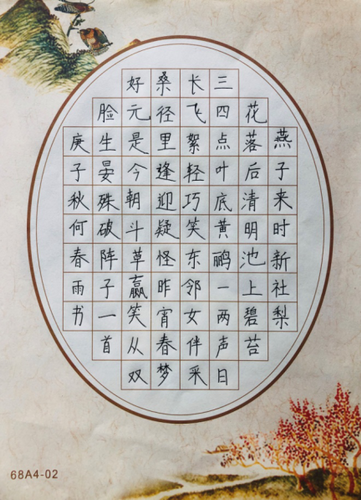 燕子来时新社梨
花落后清明池上碧苔
三四点叶底黄鹂一两声日
长飞絮轻巧笑东邻女伴采
桑径里逢迎疑怪昨宵春梦
好元是今朝斗草赢笑从双
脸生晏殊破阵子一首
庚子秋何春雨书
68A4-02